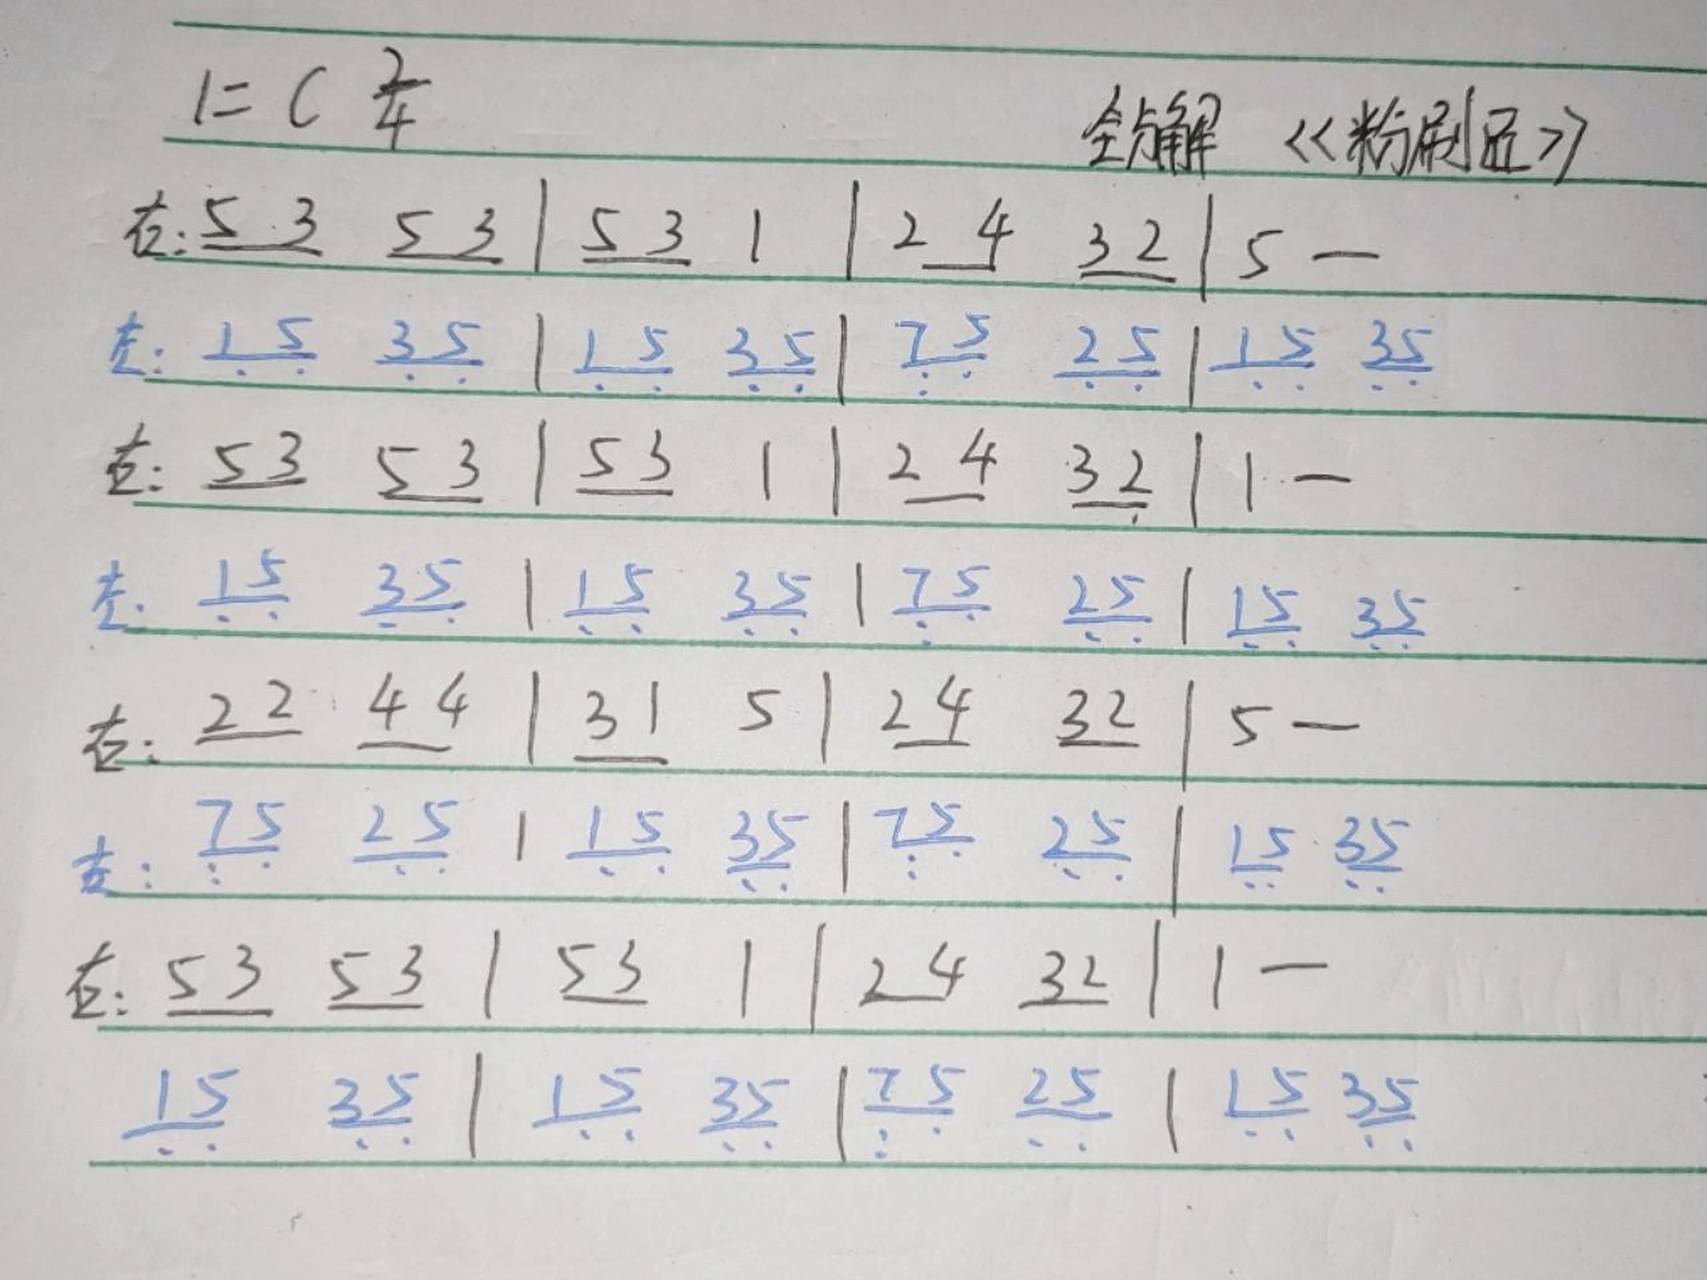 1=C 2/4 全分解 《粉刷匠》
右: 5 3 5 3 | 5 3 1 | 2 4 3 2 | 5 —
左: 1 5 3 5 | 1 5 3 5 | 7 5 2 5 | 1 5 3 5
右: 5 3 5 3 | 5 3 1 | 2 4 3 2 | 1 —
左: 1 5 3 5 | 1 5 3 5 | 7 5 2 5 | 1 5 3 5
右: 2 2 4 4 | 3 1 5 | 2 4 3 2 | 5 —
左: 7 5 2 5 | 1 5 3 5 | 7 5 2 5 | 1 5 3 5
右: 5 3 5 3 | 5 3 1 | 2 4 3 2 | 1 —
1 5 3 5 | 1 5 3 5 | 7 5 2 5 | 1 5 3 5